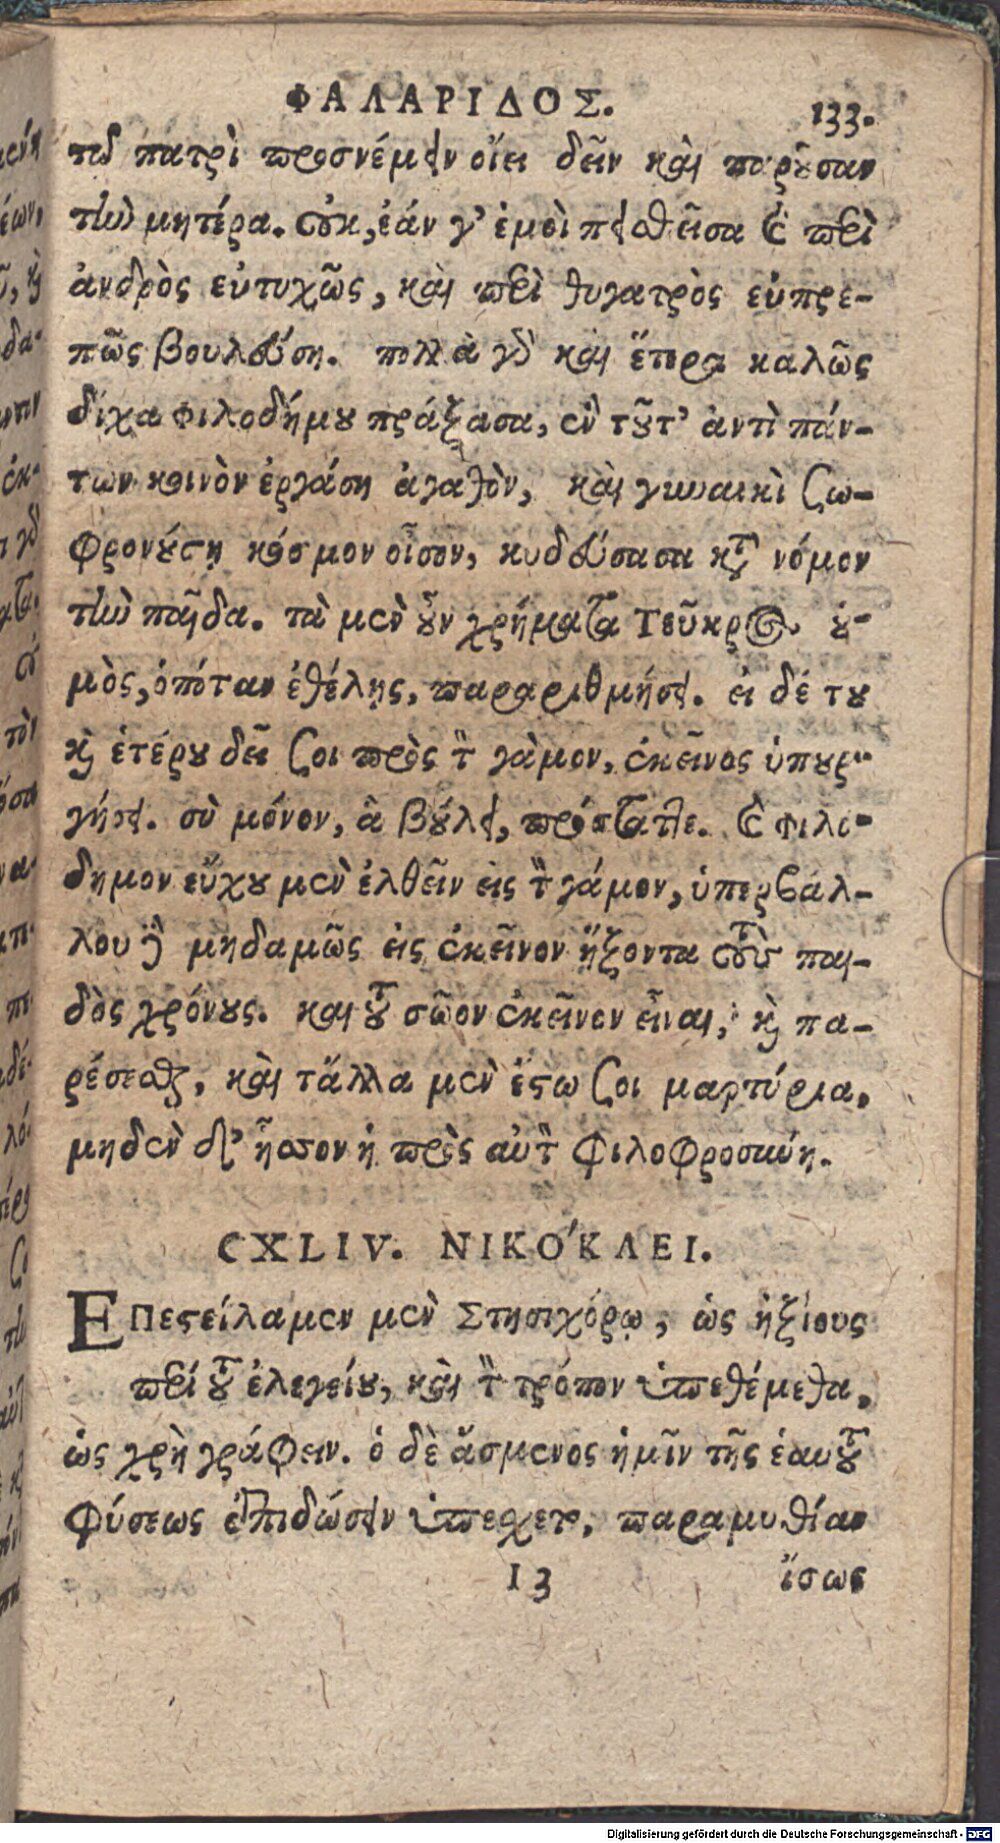 ΦΑΛΑΡΙΔΟΣ. 133.
τῷ πατρὶ προσνέμειν οἴει δεῖν καὶ παροῦσαν
τὴν μητέρα. οὐκ, ἐάν γ' ἐμοὶ πειθεῖσα καὶ περὶ
ἀνδρὸς εὐτυχῶς, καὶ περὶ θυγατρὸς εὐπρε-
πῶς βουλεύσῃ. πολλὰ γὰρ καὶ ἕτερα καλῶς
δίχα Φιλοδήμου πράξασα, ἓν τοῦτ' ἀντὶ πάν-
των κοινὸν ἐργάσῃ ἀγαθὸν, καὶ γυναικὶ σω-
φρονούσῃ κόσμον οἶσον, κυδεύσασα κατὰ νόμον
τὴν παῖδα. τὰ μὲν οὖν χρήματα Τεῦκρος ὁ ὐ-
μὸς, ὁπόταν ἐθέλῃς, παραριθμήσει. εἰ δέ του
καὶ ἑτέρου δεῖ σοι πρὸς τὸν γάμον, ἐκεῖνος ὑπουρ-
γήσει. σὺ μόνον, ἃ βούλει, πρόσταττε. καὶ Φιλό-
δημον εὔχου μὲν ἐλθεῖν εἰς τὸν γάμον, ὑπερβάλ-
λου δὲ μηδαμῶς εἰς ἐκεῖνον ἥξοντα τοὺς παι-
δὸς χρόνους. καὶ τοῦ σῶον ἐκεῖνον εἶναι, καὶ πα-
ρέσεσθαι, καὶ τἄλλα μὲν ἔστω σοι μαρτύρια,
μηδὲν δ' ἧσσον ἡ πρὸς αὐτὸν φιλοφροσύνη.
CXLIV. ΝΙΚΟΚΛΕΙ.
ΕΠεστείλαμεν μὲν Στησιχόρῳ, ὡς ἠξίους
περὶ τοῦ ἐλεγείου, καὶ τὸν τρόπον ὑπεθέμεθα,
ὡς χρὴ γράφειν. ὁ δὲ ἄσμενος ἡμῖν τῆς ἑαυτοῦ
φύσεως ἐπιδώσειν ὑπέσχετο, παραμυθίαν
I 3 ἴσως
Digitalisierung gefördert durch die Deutsche Forschungsgemeinschaft - DFG